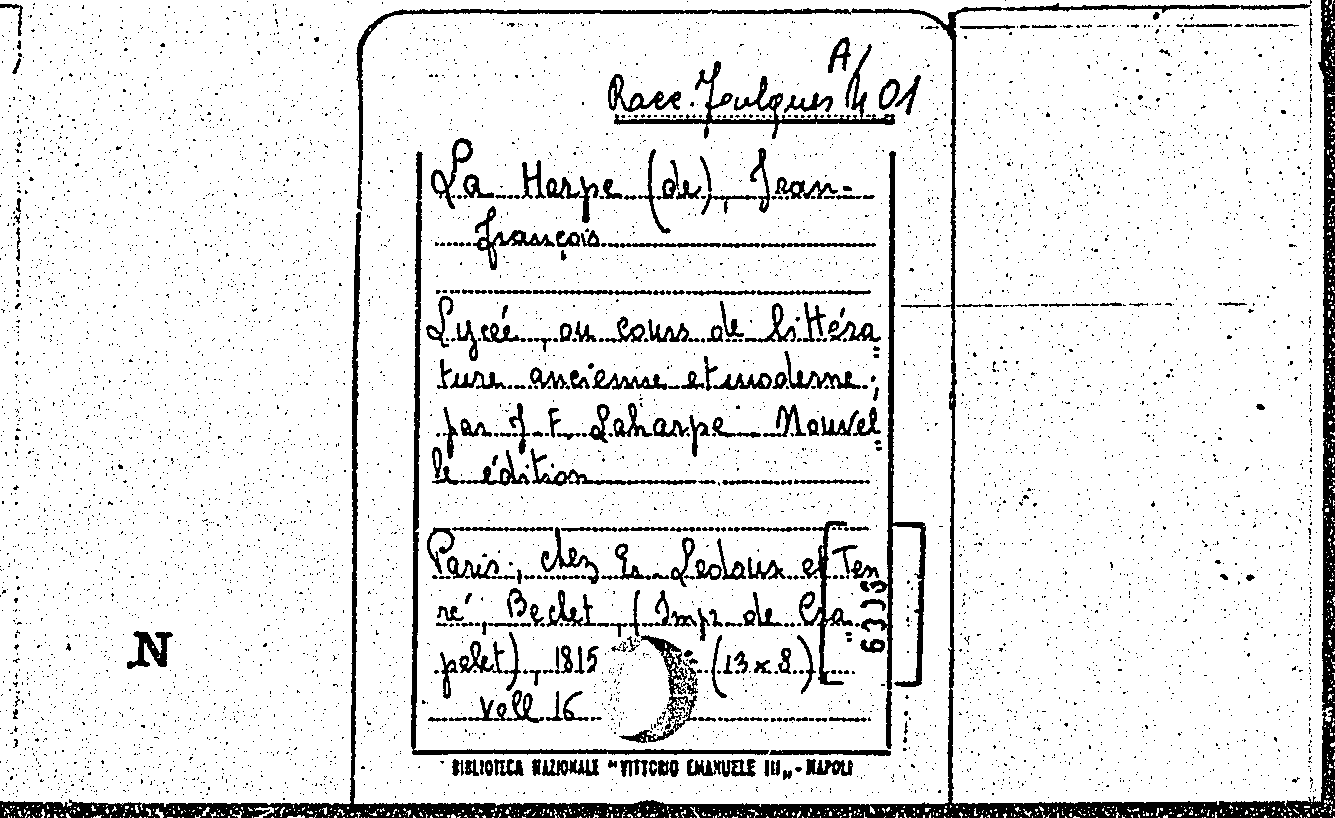 A/
Racc. Foulques 401
La Harpe (de), Jean-
François
Lyceé, ou cours de littéra
ture ancienne et moderne;
par J. F. Laharpe. Nouvel
le édition
Paris, chez E. Ledoux et Ten
ré, Bechet, (Impr de Cra
pelet), 1815 (13x8)
Voll 16
6333
N
BIBLIOTECA NAZIONALE "VITTORIO EMANUELE III„ - NAPOLI